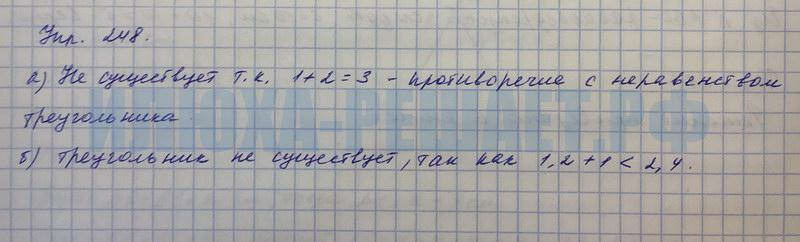 Упр. 248.
а) Не существует т.к. 1+2=3 - противоречие с неравенством
треугольника.
б) треугольник не существует, так как 1,2+1<2,4.